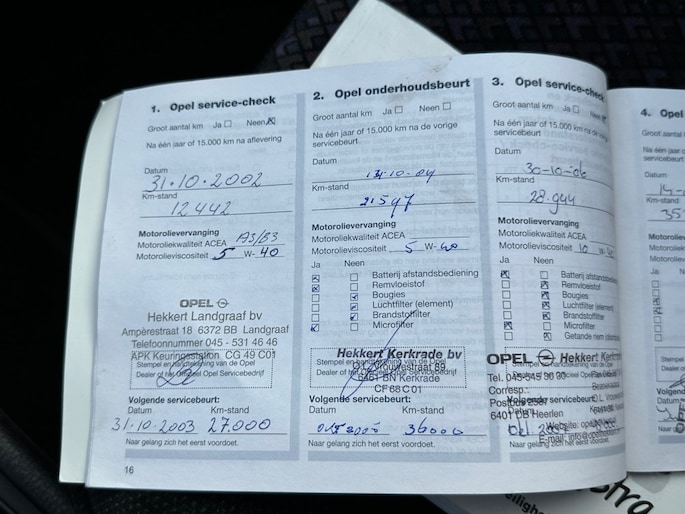 1. Opel service-check
Groot aantal km Ja Neen
Na één jaar of 15.000 km na aflevering
Datum
31.10.2002
Km-stand
12442
Motorolievervanging
Motoroliekwaliteit ACEA A3/B3
Motorolieviscositeit 5 W- 40
OPEL
Hekkert Landgraaf bv
Ampèrestraat 18 6372 BB Landgraaf
Telefoonnummer 045 - 531 46 46
APK Keuringsstation CG 49 C01
Stempel en handtekening van de Opel
Dealer of het Officieel Opel Servicebedrijf
Volgende servicebeurt:
Datum Km-stand
31-10-2003 27.000
Naar gelang zich het eerst voordoet.
16
2. Opel onderhoudsbeurt
Groot aantal km Ja Neen
Na één jaar of 15.000 km na de vorige
servicebeurt
Datum
10-04
Km-stand
21597
Motorolievervanging
Motoroliekwaliteit ACEA
Motorolieviscositeit 5 W- 40
Ja Neen
Batterij afstandsbediening
Remvloeistof
Bougies
Luchtfilter (element)
Brandstoffilter
Microfilter
Hekkert Kerkrade bv
O.L. Vrouwestraat 89
6461 BN Kerkrade
CF 68 C 01
Stempel en handtekening van de Opel
Dealer of het Officieel Opel Servicebedrijf
Volgende servicebeurt:
Datum Km-stand
36000
Naar gelang zich het eerst voordoet.
3. Opel service-check
Groot aantal km Ja
Na één jaar of 15.000 km na de vorige
servicebeurt
Datum
30-10-06
Km-stand
28.944
Motorolievervanging
Motoroliekwaliteit ACEA
Motorolieviscositeit 10 W-
Ja Neen
Batterij afstandsbediening
Remvloeistof
Bougies
Luchtfilter (element)
Brandstoffilter
Microfilter
Getande riem
OPEL Hekkert Kerkrade
Tel. 045-545
Corresp.
Postbus
6401 DB Heerlen
Volgende servicebeurt:
Website:
E-mail:
Naar gelang zich het
4. Opel
Groot aantal
Na één jaar of
servicebeurt
Datum
Km-stand
35
Motorolie
Ja